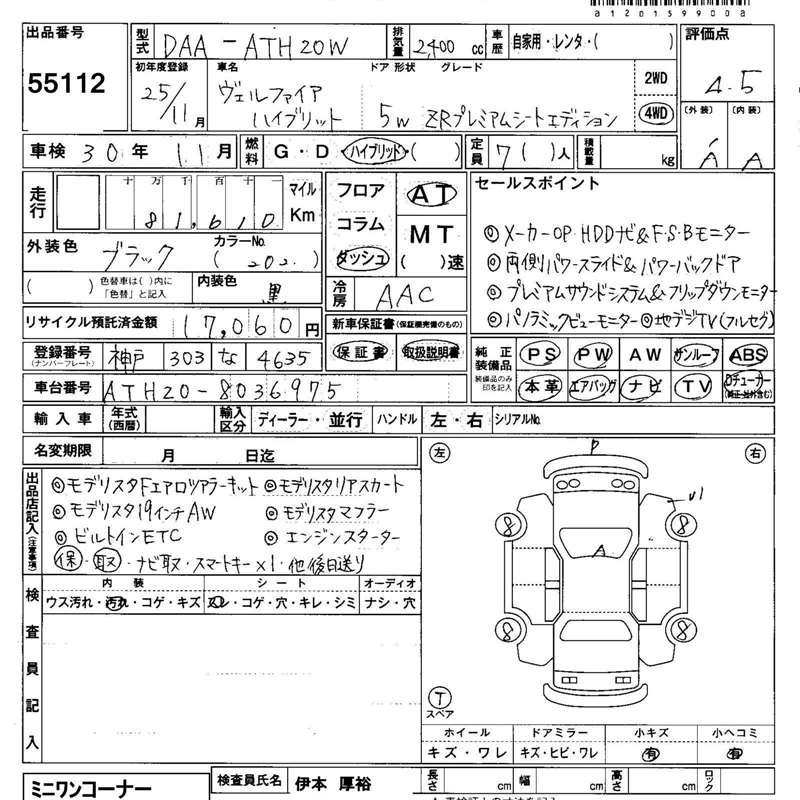 a120159900a
出品番号
55112
型式 DAA-ATH20W
排気量 2,400 cc
車歴 自家用・レンタ・( )
評価点
4.5
(外装) (内装)
A A
初年度登録 25/11月
車名 ドア 形状 グレード
ヴェルファイア
ハイブリット 5W ZRプレミアムシートエディション
2WD
4WD
車検 30年 11月
燃料 G・D ハイブリッド・( )
定員 7( )人
積載量 kg
走行 十万千百十 マイル
81,610 Km
外装色 ブラック
カラーNo. (202)
( ) 色替車は( )内に「色替」と記入
内装色 黒
リサイクル預託済金額 17,060円
フロア
コラム
ダッシュ
AT
MT
( )速
冷房 AAC
新車保証書(保証継完備のもの)
保証書 取扱説明書
セールスポイント
◎メーカーOP HDDナビ&F・S・Bモニター
◎両側パワースライド&パワーバックドア
◎プレミアムサウンドシステム&フリップダウンモニター
◎パノラミックビューモニター◎地デジTV(フルセグ)
登録番号(ナンバープレート) 神戸 303 な 4635
車台番号 ATH20-8036975
純正装備品 装備品のみ印を記入
PS PW AW サンルーフ ABS
本革 エアバッグ ナビ TV Dチューナー(純正・社外含む)
輸入車 年式(西暦) 輸入区分 ディーラー・並行 ハンドル 左・右 シリアルNo.
名変期限 月 日迄
出品店記入(注意事項)
◎モデリスタFエアロツアラーキット◎モデリスタリアスカート
◎モデリスタ19インチAW ◎モデリスタマフラー
◎ビルトインETC ◎エンジンスターター
保・取・ナビ取・スマートキー×1・他後日送り
検査員記入
内装 シート オーディオ
ウス汚れ・汚れ・コゲ・キズ スレ・コゲ・穴・キレ・シミ ナシ・穴
左 右
P
U1
8 8
A
8 8
T
スペア
ホイール ドアミラー 小キズ 小ヘコミ
キズ・ワレ キズ・ヒビ・ワレ 有 有
ミニワンコーナー
検査員氏名 伊本 厚裕
長さ cm 幅 cm 高さ cm ロック